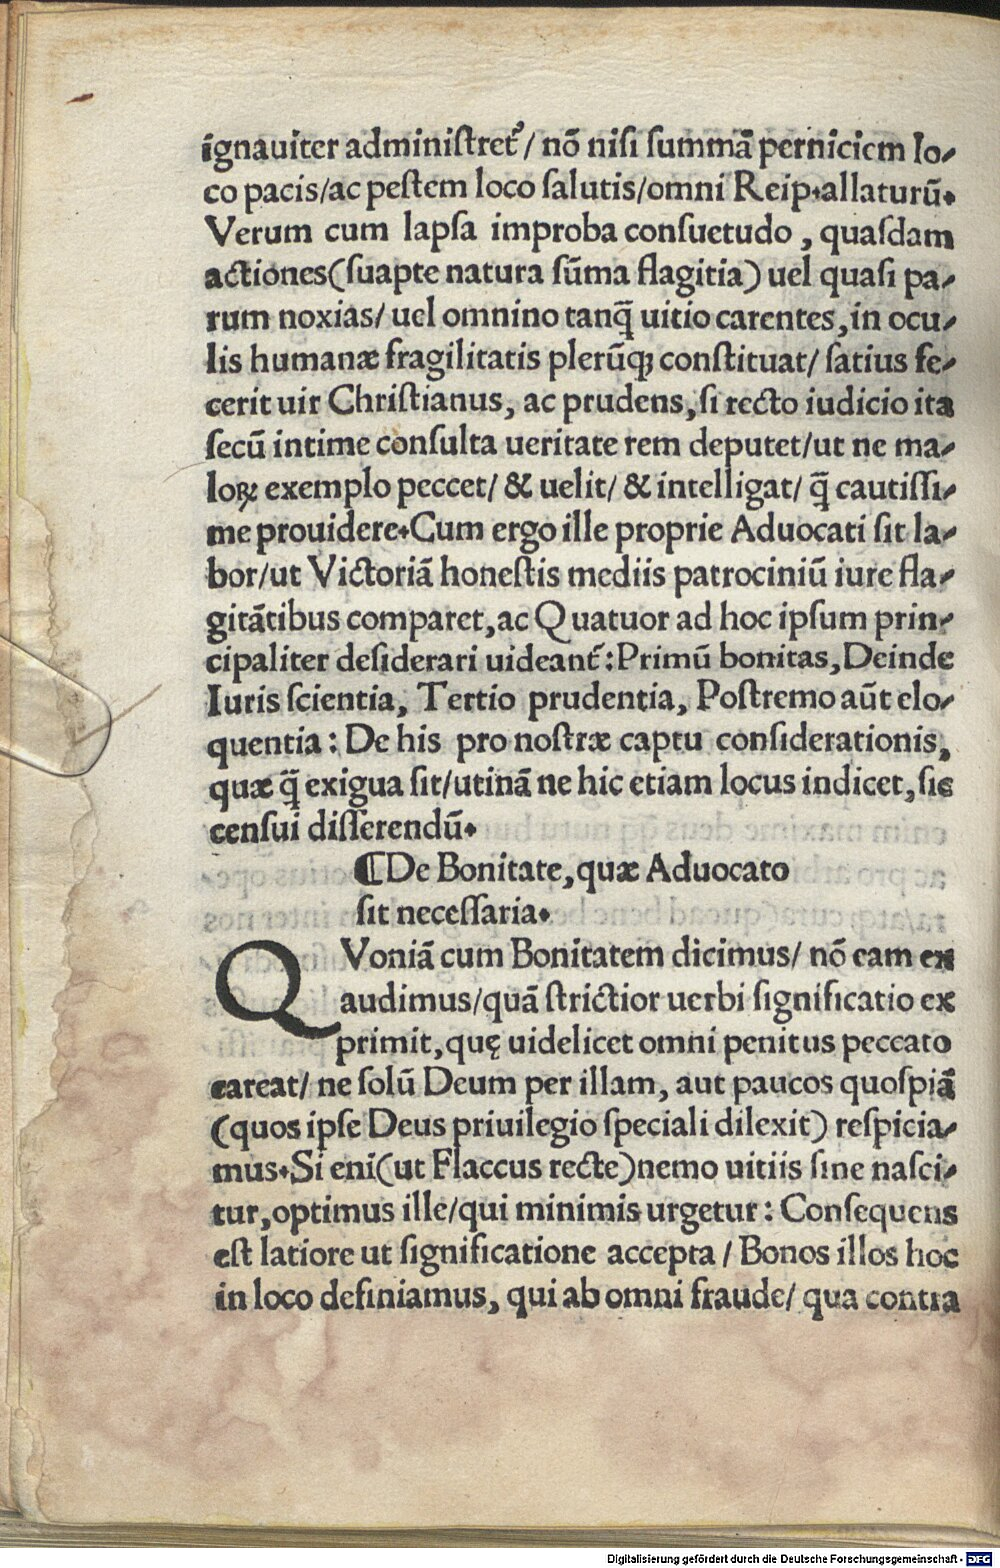 ignauiter administret᷑/ nõ nisi summã perniciem lo⸗
co pacis/ac pestem loco salutis/omni Reip.allaturũ.
Verum cum lapsa improba consuetudo, quasdam
actiones(suapte natura sũma flagitia) uel quasi pa⸗
rum noxias/ uel omnino tanq̃ uitio carentes, in ocu⸗
lis humanæ fragilitatis plerũq; constituat/ satius fe⸗
cerit uir Christianus, ac prudens, si recto iudicio ita
secũ intime consulta ueritate rem deputet/ut ne ma⸗
loꝝ exemplo peccet/ & uelit/ & intelligat/ q̃ cautissi⸗
me prouidere.Cum ergo ille proprie Aduocati sit la⸗
bor/ut Victoriã honestis mediis patrociniũ iure fla⸗
gitãtibus comparet, ac Quatuor ad hoc ipsum prin⸗
cipaliter desiderari uideant᷑: Primũ bonitas, Deinde
Iuris scientia, Tertio prudentia, Postremo aũt elo⸗
quentia: De his pro nostræ captu considerationis,
quæ q̃ exigua sit/utinã ne hic etiam locus indicet, sic
censui disserendũ.
¶De Bonitate, quæ Aduocato
sit necessaria.
QVoniã cum Bonitatem dicimus/ nõ eam ex
audimus/quã strictior uerbi significatio ex
primit, quę uidelicet omni penitus peccato
careat/ ne solũ Deum per illam, aut paucos quospiã
(quos ipse Deus priuilegio speciali dilexit) respicia⸗
mus.Si eni(ut Flaccus recte)nemo uitiis sine nasci⸗
tur, optimus ille/qui minimis urgetur: Consequens
est latiore ut significatione accepta/ Bonos illos hoc
in loco definiamus, qui ab omni fraude/ qua contra
Digitalisierung gefördert durch die Deutsche Forschungsgemeinschaft - DFG